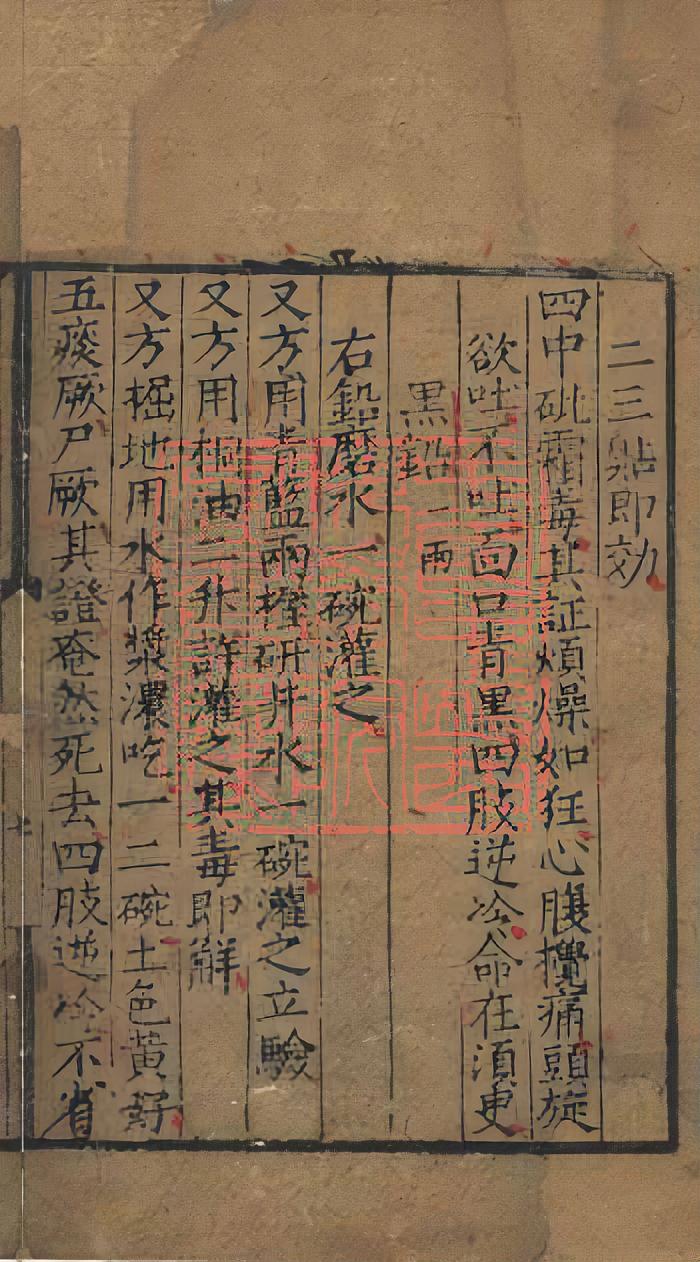 二三貼即効
四中砒霜毒其証煩燥如狂心腹攪痛頭旋
欲吐不吐面口青黒四肢逆冷命在須臾
黒鉛一兩
右鉛磨水一碗灌之
又方用青藍兩握研井水一碗灌之立驗
又方用桐油二升許灌之其毒即解
又方掘地用水作漿濃吃一二碗土色黄好
五痰厥尸厥其證奄然死去四肢逆冷不省